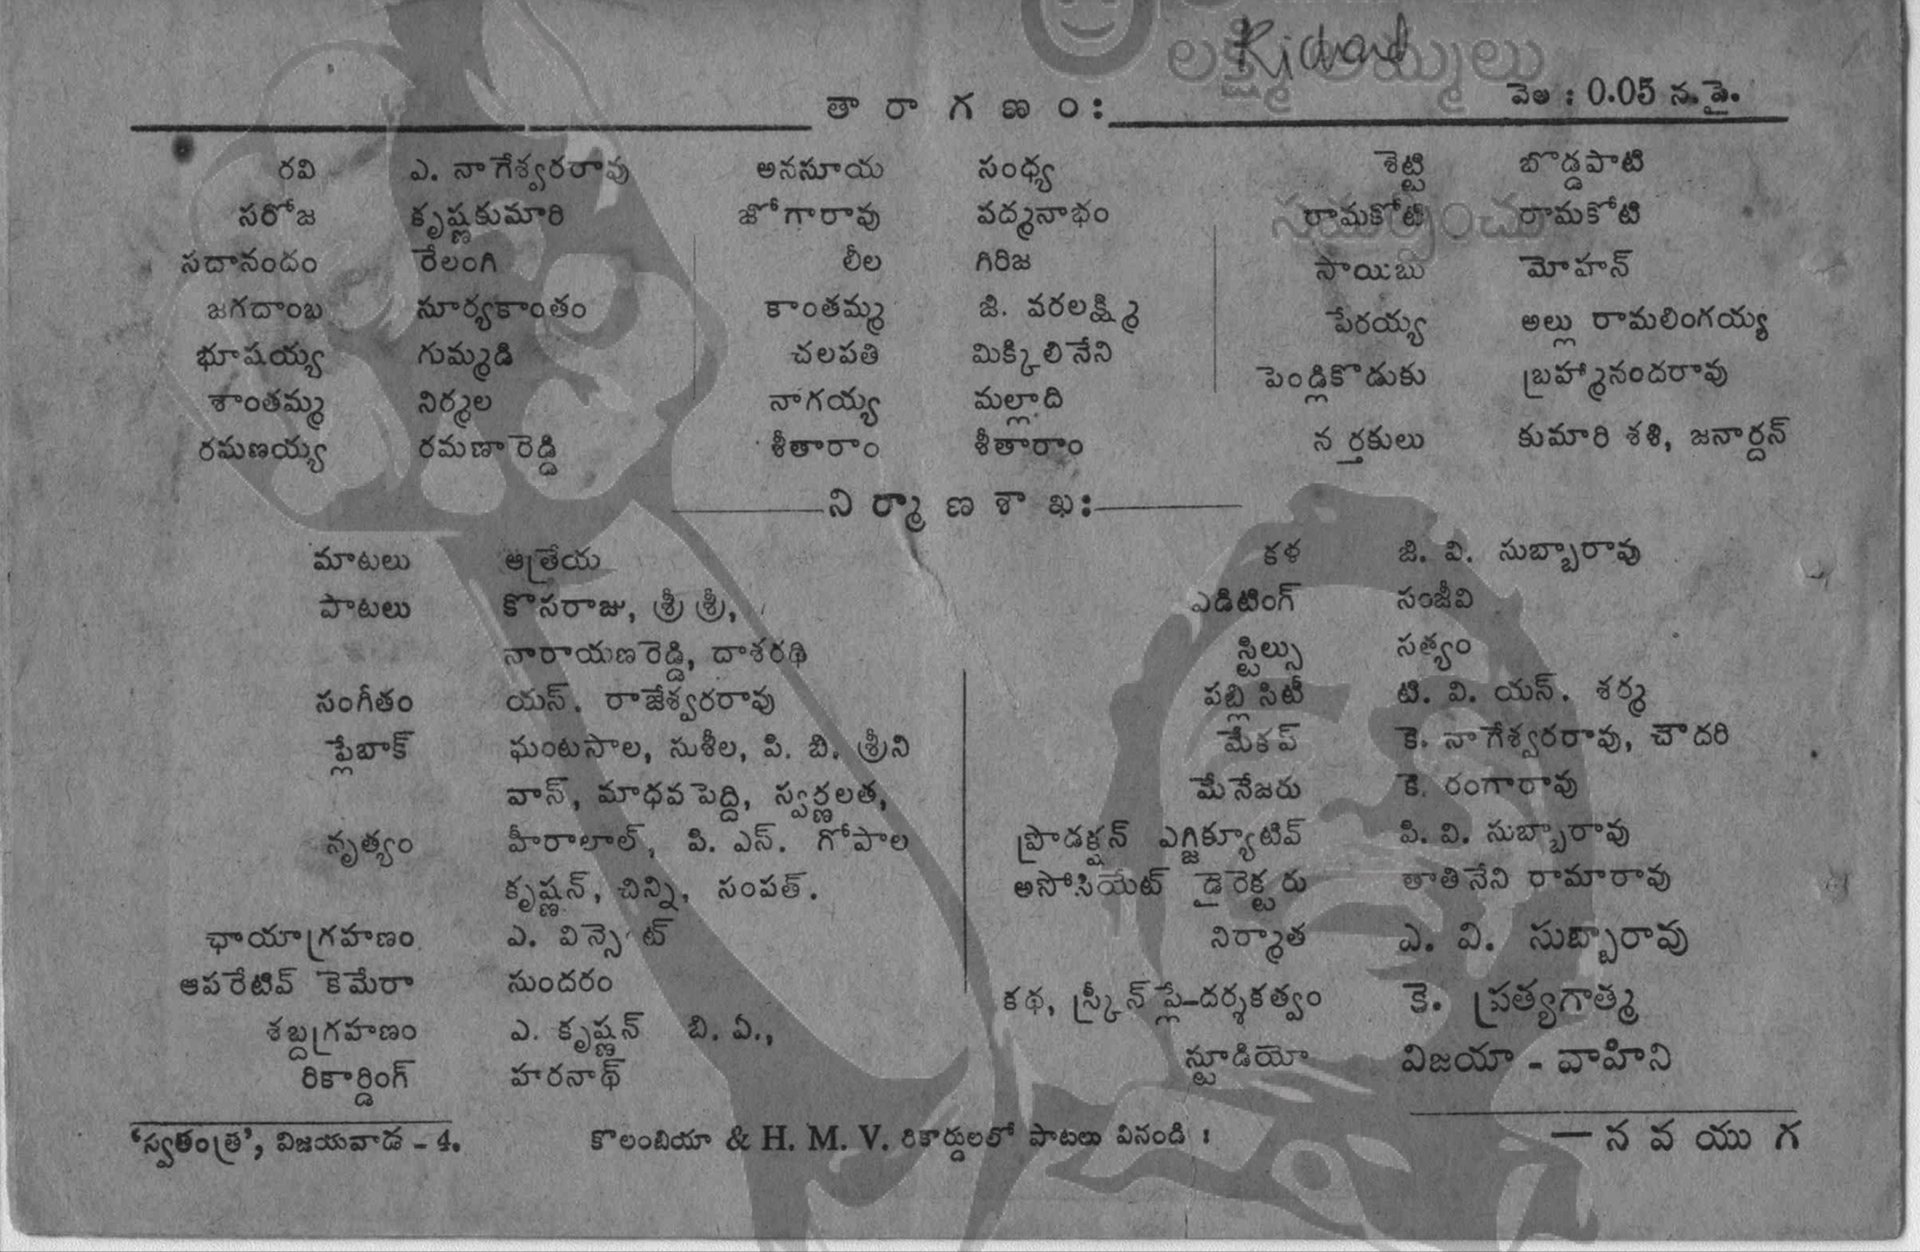 Richard
లక్ష్మి అమ్మాలు
తారాగణం:
వెల : 0.05 న.పై.
రవి ఎ. నాగేశ్వరరావు
సరోజ కృష్ణకుమారి
సదానందం రేలంగి
జగదాంబ సూర్యకాంతం
భూషయ్య గుమ్మడి
శాంతమ్మ నిర్మల
రమణయ్య రమణారెడ్డి
అనసూయ సంధ్య
జోగారావు పద్మనాభం
లీల గిరిజ
కాంతమ్మ జి. వరలక్ష్మి
చలపతి మిక్కిలినేని
నాగయ్య మల్లాది
శీతారాం శీతారాం
శెట్టి బొడ్డపాటి
రామకోటి రామకోటి
సాయిబు మోహన్
పేరయ్య అల్లు రామలింగయ్య
పెండ్లికొడుకు బ్రహ్మానందరావు
నర్తకులు కుమారి శశి, జనార్దన్
నిర్మాణశాఖ:
మాటలు ఆత్రేయ
పాటలు కొసరాజు, శ్రీ శ్రీ,
నారాయణరెడ్డి, దాశరథి
సంగీతం యస్. రాజేశ్వరరావు
ప్లేబాక్ ఘంటసాల, సుశీల, పి. బి. శ్రీని
వాస్, మాధవపెద్ది, స్వర్ణలత,
నృత్యం హీరాలాల్, పి. ఎస్. గోపాల
కృష్ణన్, చిన్ని, సంపత్.
ఛాయాగ్రహణం ఎ. విన్సెంట్
ఆపరేటివ్ కెమేరా సుందరం
శబ్దగ్రహణం ఎ. కృష్ణన్ బి. ఏ.,
రికార్డింగ్ హరనాథ్
కళ జి. వి. సుబ్బారావు
ఎడిటింగ్ సంజీవి
స్టిల్సు సత్యం
పబ్లిసిటీ టి. వి. యస్. శర్మ
మేకప్ కె. నాగేశ్వరరావు, చౌదరి
మేనేజరు కె. రంగారావు
ప్రొడక్షన్ ఎగ్జిక్యూటివ్ పి. వి. సుబ్బారావు
అసోసియేట్ డైరెక్టరు తాతినేని రామారావు
నిర్మాత ఎ. వి. సుబ్బారావు
కథ, స్క్రీన్ ప్లే-దర్శకత్వం కె. ప్రత్యగాత్మ
స్టూడియో విజయా - వాహిని
'స్వతంత్ర', విజయవాడ - 4.
కొలంబియా & H. M. V. రికార్డులలో పాటలు వినండి :
— నవయుగ